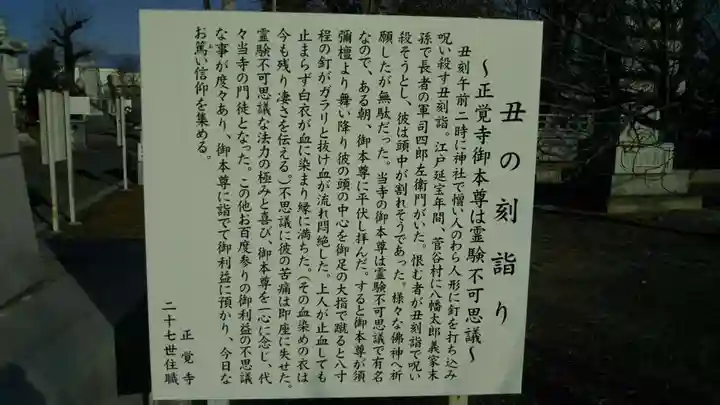 丑の刻詣り
～正覚寺御本尊は霊験不可思議～
丑刻午前二時に神社で憎い人のわら人形に釘を打ち込み
呪い殺す丑刻詣。江戸延宝年間、菅谷村に八幡太郎義家末
孫で長者の軍司四郎左衛門がいた。恨む者が丑刻詣で呪い
殺そうとし、彼は頭中が割れそうであった。様々な佛神へ祈
願したが無駄だった。当寺の御本尊は霊験不可思議で有名
なので、ある朝、御本尊に平伏し拝んだ。すると御本尊が須
彌檀より舞い降り彼の頭の中心を御足の大指で蹴ると八寸
程の釘がガラリと抜け血が流れ悶絶した。上人が止血しても
止まらず白衣が血に染まり縁に満ちた。（その血染めの衣は
今も残り凄さを伝える。）不思議に彼の苦痛は即座に失せた。
霊験不可思議な法力の極みと喜び、御本尊を一心に念じ、代
々当寺の門徒となった。この他お百度参りの御利益の不思議
な事が度々あり、御本尊に詣でて御利益に預かり、今日な
お篤い信仰を集める。
正覚寺
二十七世住職